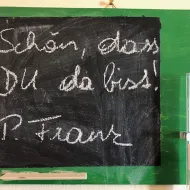 Schön, dass
DU da biss!
P. Franz